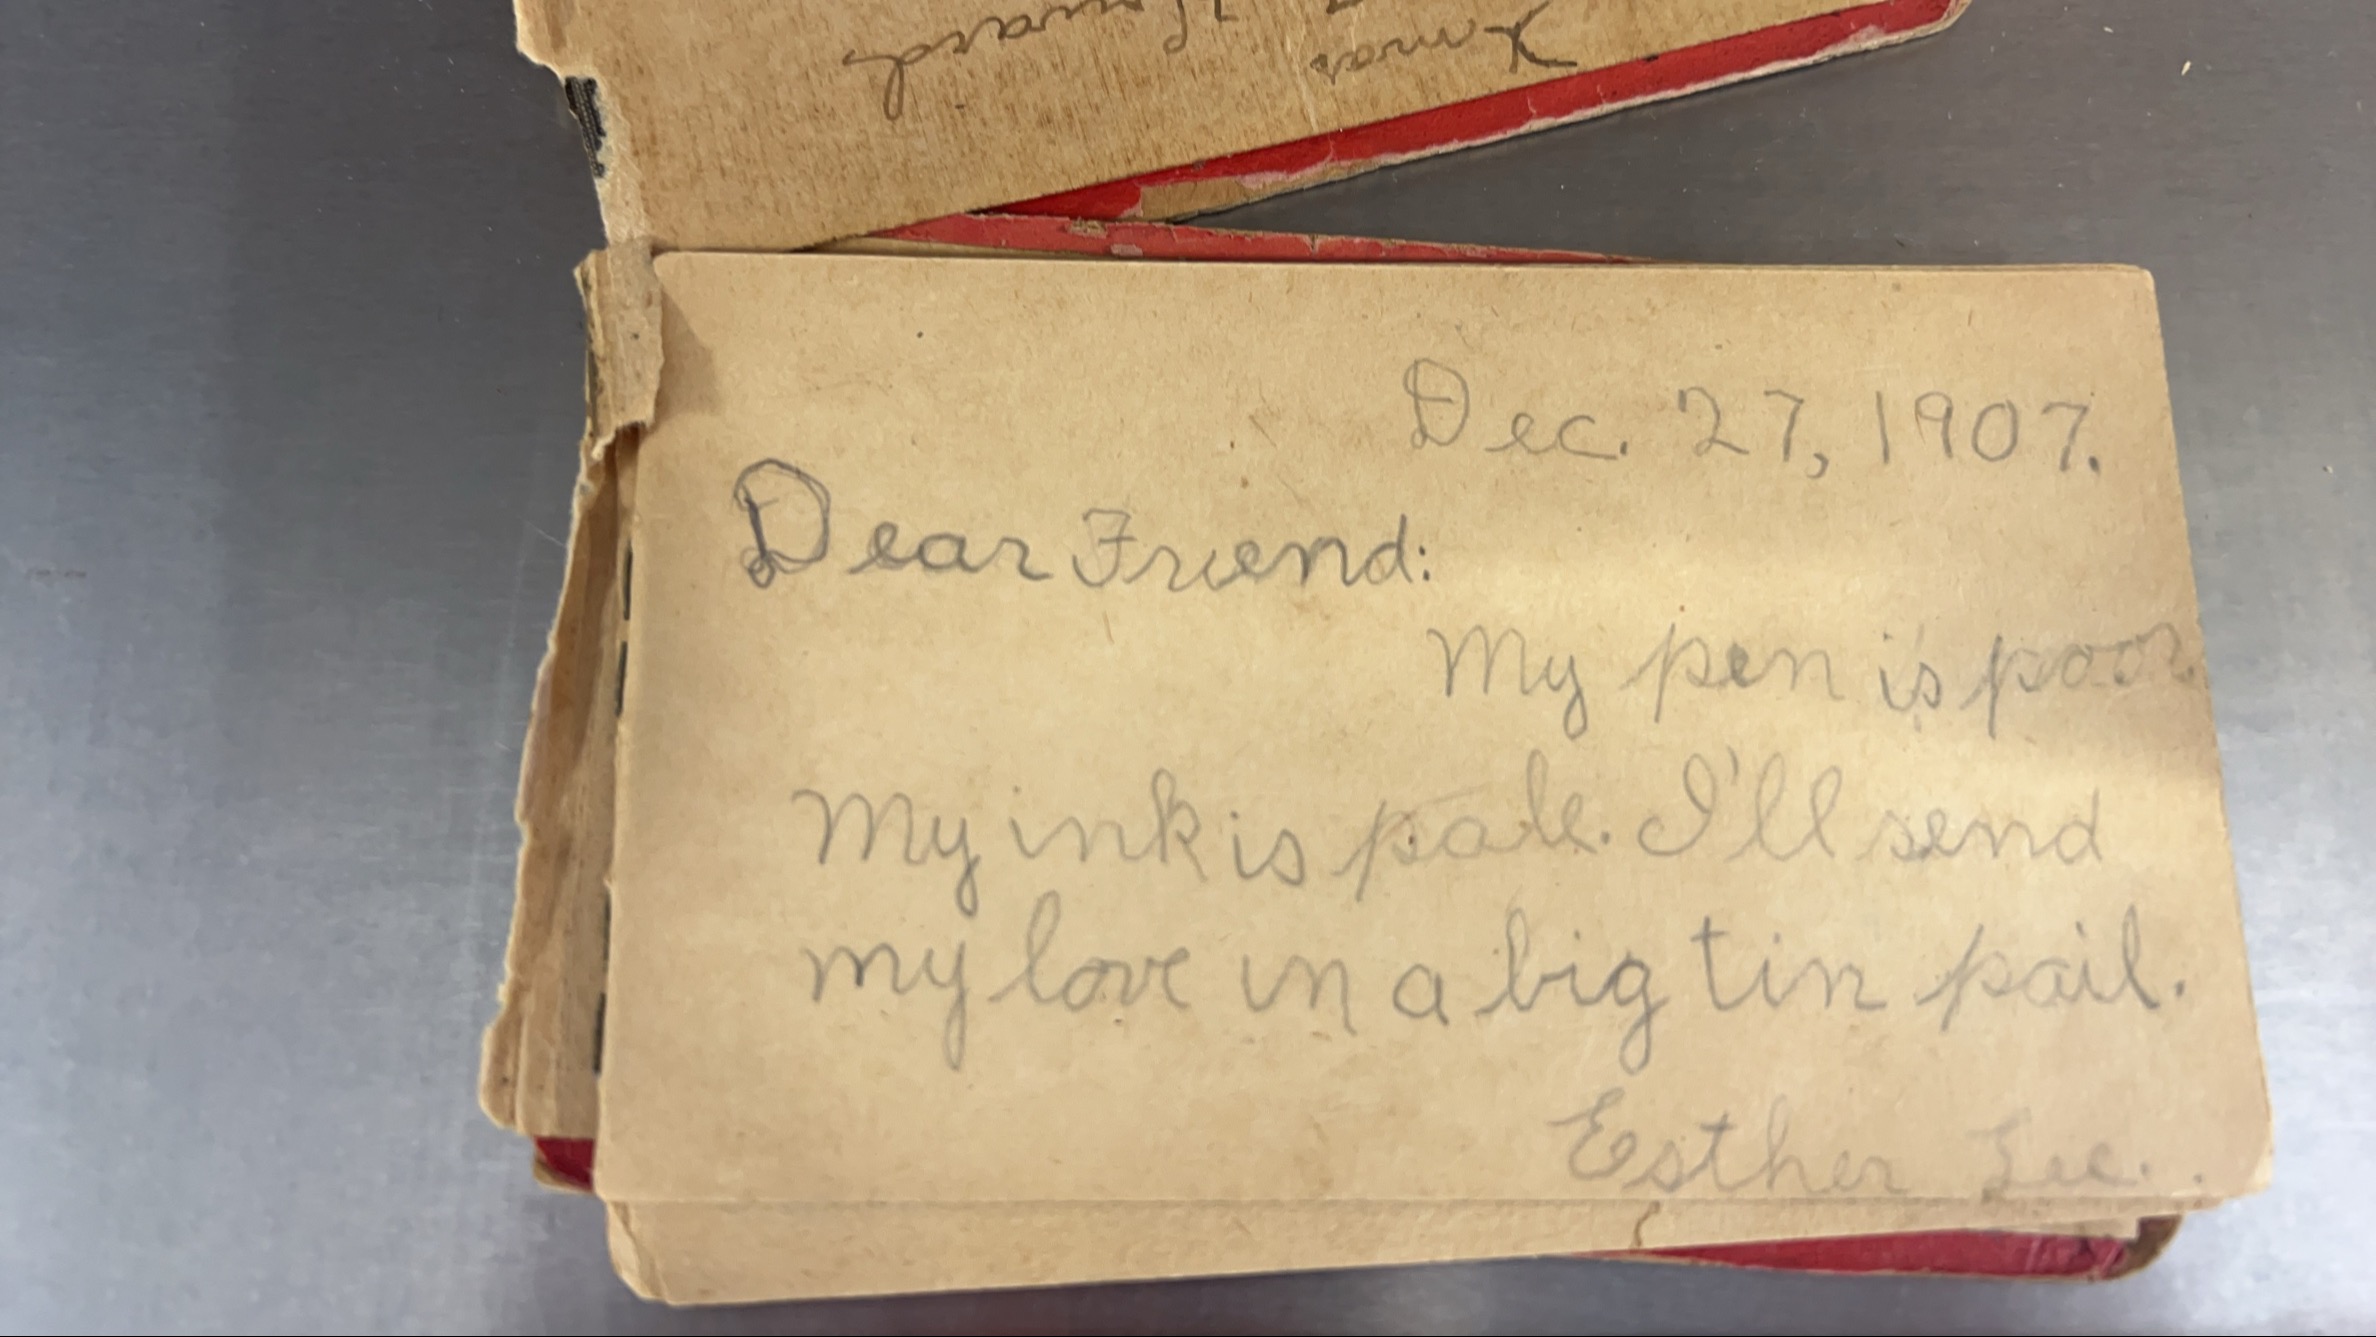 Xmas
Howard
Dec. 27, 1907.
Dear Friend:
My pen is poor
My ink is pale. I'll send
my love in a big tin pail.
Esther Lee.